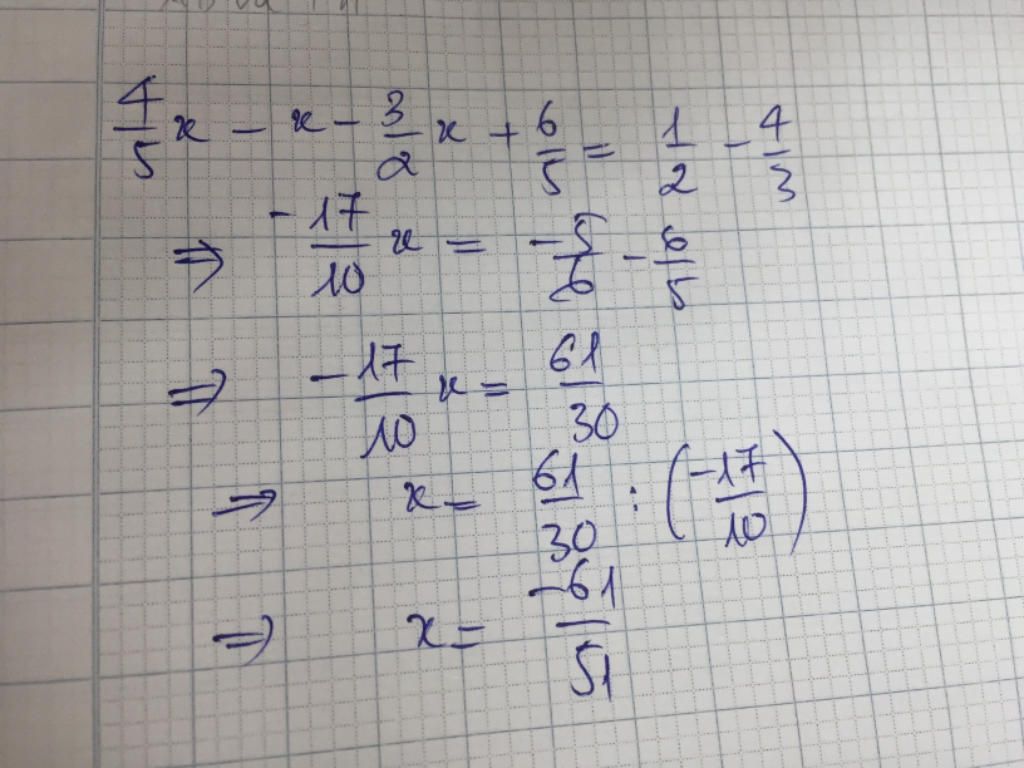 4/5 x - x - 3/2 x + 6/5 = 1/2 - 4/3
⇒ -17/10 x = -5/6 - 6/5
⇒ -17/10 x = 61/30
⇒ x = 61/30 : (-17/10)
⇒ x = -61/51